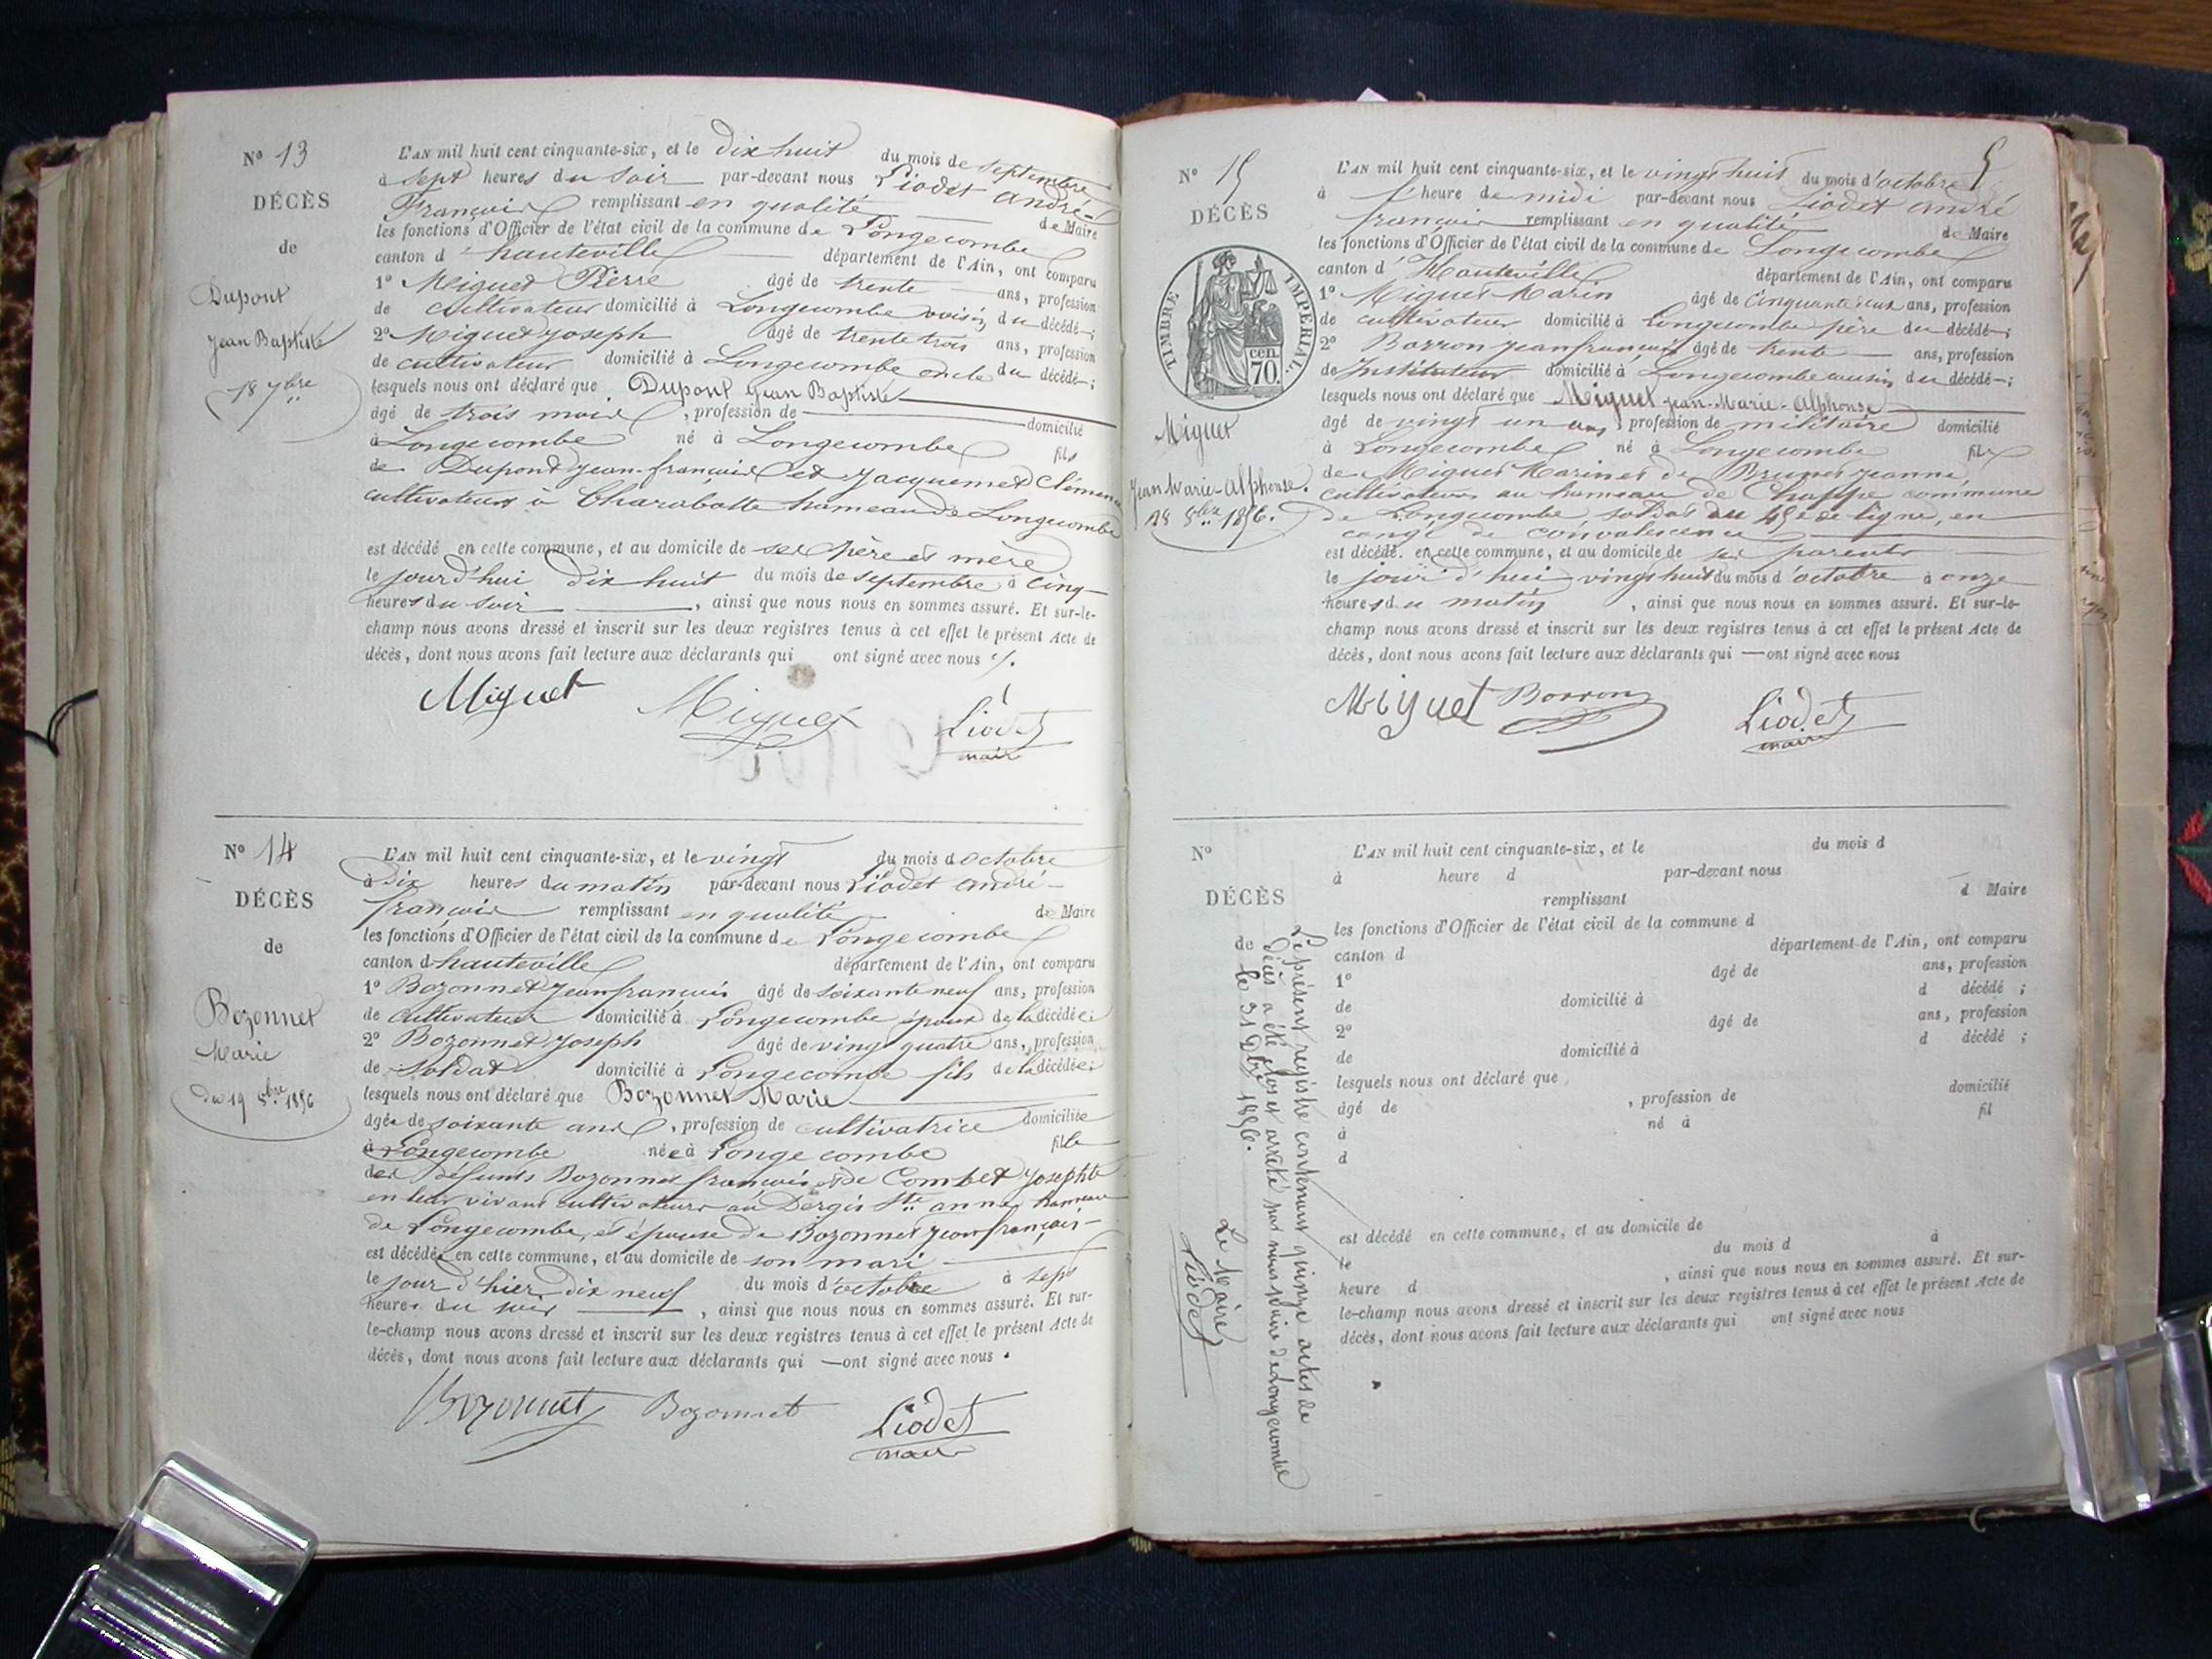 N° 13
DÉCÈS
de
Dupont
Jean Baptiste
18 7bre
L'AN mil huit cent cinquante-six, et le dix huit du mois de septembre
à sept heures du soir par-devant nous Liodet André-
François remplissant en qualité de Maire
les fonctions d'Officier de l'état civil de la commune de Longecombe
canton d'hauteville département de l'Ain, ont comparu
1° Miguet Pierre âgé de trente ans, profession
de cultivateur domicilié à Longecombe voisin du décédé ;
2° Miguet Joseph âgé de trente trois ans, profession
de cultivateur domicilié à Longecombe oncle du décédé ;
lesquels nous ont déclaré que Dupont Jean Baptiste
âgé de trois mois, profession de domicilié
à Longecombe né à Longecombe fils
de Dupont Jean-françois et Jacquemet Clémence
cultivateurs à Charabotte hameau de Longecombe
est décédé en cette commune, et au domicile de ses père et mère
le jourd'hui dix huit du mois de septembre à cinq
heures du soir, ainsi que nous nous en sommes assuré. Et sur-le-
champ nous avons dressé et inscrit sur les deux registres tenus à cet effet le présent Acte de
décès, dont nous avons fait lecture aux déclarants qui ont signé avec nous
Miguet Miguet Liodet
maire
N° 14
DÉCÈS
de
Bozonnet
Marie
du 19 8bre 1856
L'AN mil huit cent cinquante-six, et le vingt du mois d'octobre
à Dix heures du matin par-devant nous Liodet André-
françois remplissant en qualité de Maire
les fonctions d'Officier de l'état civil de la commune de Longecombe
canton d'hauteville département de l'Ain, ont comparu
1° Bozonnet Jean françois âgé de soixante neuf ans, profession
de cultivateur domicilié à Longecombe époux de la décédée;
2° Bozonnet Joseph âgé de vingt quatre ans, profession
de soldat domicilié à Longecombe fils de la décédée;
lesquels nous ont déclaré que Bozonnet Marie
âgée de soixante ans, profession de cultivatrice domiciliée
à Longecombe née à Longecombe fille
des défunts Bozonnet françois et de Combet Josephte
en leur vivant cultivateurs au Dergis Ste anne hameau
de Longecombe, et épouse de Bozonnet Jean françois-
est décédée en cette commune, et au domicile de son mari
le jour d'hier dix neuf du mois d'octobre à sept
heures du soir, ainsi que nous nous en sommes assuré. Et sur-
le-champ nous avons dressé et inscrit sur les deux registres tenus à cet effet le présent Acte de
décès, dont nous avons fait lecture aux déclarants qui ont signé avec nous.
Bozonnet Bozonnet Liodet
maire
5
N° 15
DÉCÈS
TIMBRE IMPERIAL
70. cen.
Miguet
Jean Marie-Alphonse.
28 8bre 1856.
L'AN mil huit cent cinquante-six, et le vingt huit du mois d'octobre
à l'heure de midi par-devant nous Liodet André
françois remplissant en qualité de Maire
les fonctions d'Officier de l'état civil de la commune de Longecombe
canton d'Hauteville département de l'Ain, ont comparu
1° Miguet Marin âgé de cinquante deux ans, profession
de cultivateur domicilié à Longecombe père du décédé ;
2° Borron Jean françois âgé de trente ans, profession
de Instituteur domicilié à Longecombe cousin du décédé ;
lesquels nous ont déclaré que Miguet Jean-Marie-Alphonse
âgé de vingt un ans, profession de militaire domicilié
à Longecombe né à Longecombe fils
de Miguet Marin et de Brunet Jeanne,
cultivateurs au hameau de commune
de Longecombe soldat au 49e de ligne, en
congé de convalescence
est décédé. en cette commune, et au domicile de ses parents
le jour d'hui vingt huit du mois d'octobre à onze
heures du matin, ainsi que nous nous en sommes assuré. Et sur-le-
champ nous avons dressé et inscrit sur les deux registres tenus à cet effet le présent Acte de
décès, dont nous avons fait lecture aux déclarants qui ont signé avec nous
Miguet Borron Liodet
maire
N°
DÉCÈS
de
Le présent registre contenant quinze actes de
décès a été clos et arrêté par nous maire de Longecombe
le 31 Dbre 1856.
Le Maire
Liodet
L'AN mil huit cent cinquante-six, et le du mois d
à heure d par-devant nous
remplissant d Maire
les fonctions d'Officier de l'état civil de la commune d
canton d département de l'Ain, ont comparu
1° âgé de ans, profession
de domicilié à d décédé ;
2° âgé de ans, profession
de domicilié à d décédé ;
lesquels nous ont déclaré que
âgé de , profession de domicilié
à né à fil
d
est décédé en cette commune, et au domicile de
le du mois d à
heure d , ainsi que nous nous en sommes assuré. Et sur-
le-champ nous avons dressé et inscrit sur les deux registres tenus à cet effet le présent Acte de
décès, dont nous avons fait lecture aux déclarants qui ont signé avec nous